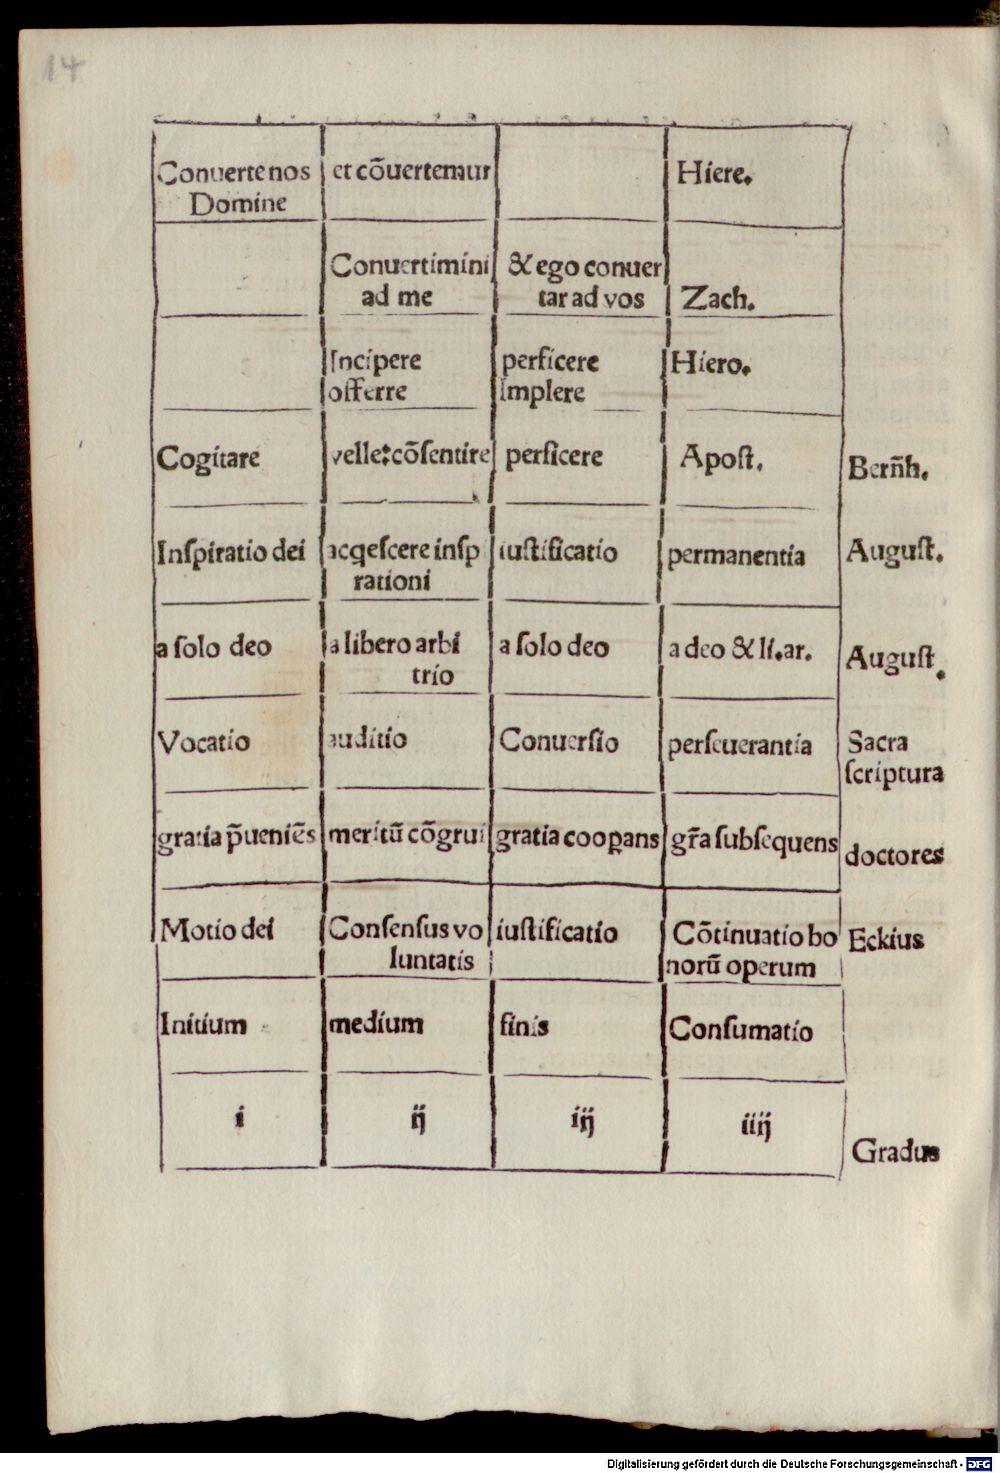 14
Conuerte nos | et cõuertemur | | Hiere.
Domine
Conuertimini | & ego conuer
ad me | tar ad vos | Zach.
Incipere | perficere | Hiero.
offerre | Implere
Cogitare | velle:cõſentire | perficere | Apoſt. | Bern̄h.
Inſpiratio dei | acqeſcere inſp | iuſtificatio | permanentia | Auguſt.
rationi
a ſolo deo | a libero arbi | a ſolo deo | a deo & li.ar. | Auguſt.
trio
Vocatio | auditio | Conuerſio | perſeuerantia | Sacra
ſcriptura
gratia p̄ueniẽs | meritũ cõgrui | gratia coopans | gr̃a ſubſequens | doctores
Motio dei | Conſenſus vo | iuſtificatio | Cõtinuatio bo | Eckius
luntatis | norũ operum
Initium | medium | finis | Conſumatio
i | ij | iij | iiij | Gradus
Digitalisierung gefördert durch die Deutsche Forschungsgemeinschaft - DFG